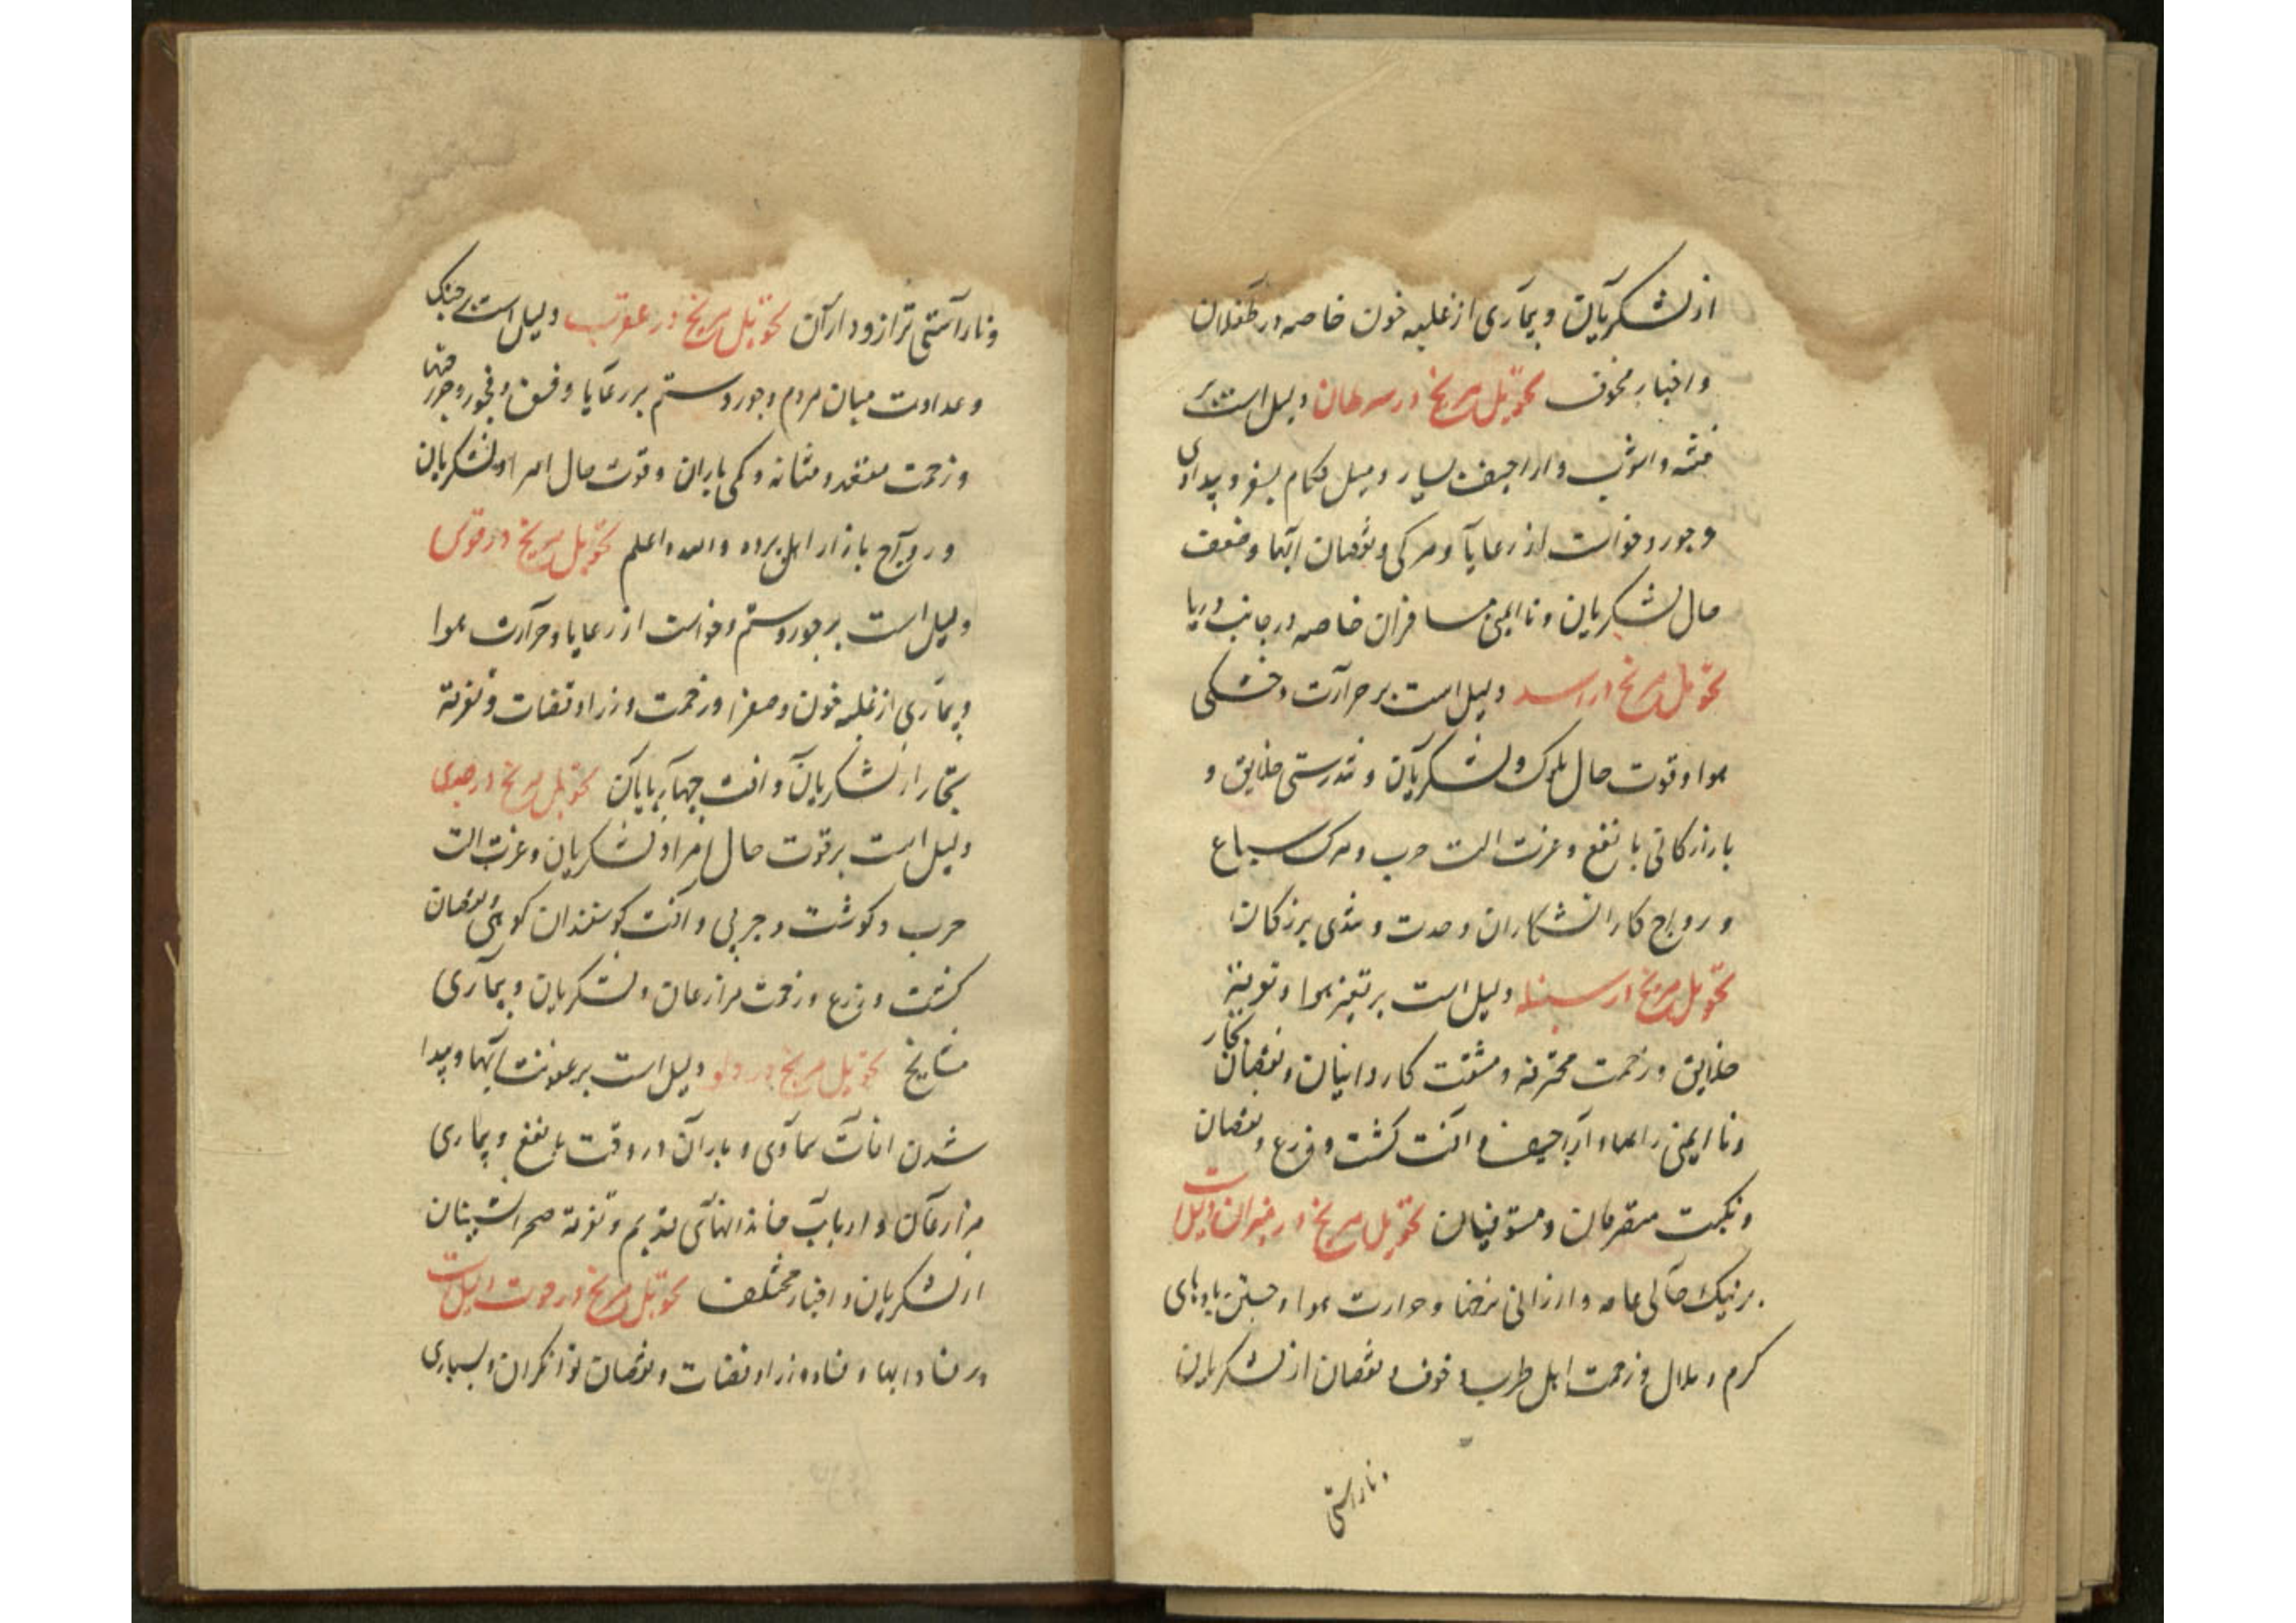 از لشکریان و بیماری از غلبه خون خاصه در طفلان
و اخبار مخوف تحویل مریخ در سرطان دلیل است بر
فتنه و اشوب و اراجیف بسیار و میل حکام بسفر و بیدادی
و جور و خواست از رعایا و مرکی و نقصان ابها و ضعف
حال لشکریان و ناایمنی مسافران خاصه در جانب دریا
تحویل مریخ در اسد دلیل است بر حرارت و خشکی
هوا و قوت حال ملوک و لشکریان و تندرستی خلایق و
بازارکانی با نفع و عزت الت حرب و مرک سباع
و رواج کار اتشکاران و حدت و تندی بزرکان
تحویل مریخ در سنبله دلیل است بر تغیر هوا و
خلایق و زحمت محترفه و مشقت کاردانیان و نقصان تجار
و ناایمنی راهها و اراجیف و افت کشت و زرع و نقصان
و نکبت متصرفان و مستوفیان تحویل مریخ در میزان دلیل است
بر نیک حالی عامه و ارزانی نرخها و حرارت هوا و جستن بادهای
کرم و ملال و زحمت اهل طرب و خوف و نقصان از لشکریان
و ناراستی
و ناراستی ترازوداران تحویل مریخ در عقرب دلیل است بر جنک
و عداوت میان مردم و جور و ستم بر رعایا و فسق و فجور و
و زحمت مقعد و مثانه و کمی باران و قوت حال امرا و لشکریان
و رواج بازار اهل برده والله اعلم تحویل مریخ در قوس
دلیل است بر جور و ستم و خواست از رعایا و حرارت هوا
و بیماری از غلبه خون و صفرا و زحمت وزرا و قضات و تفرقه
تجار از لشکریان و افت چهارپایان تحویل مریخ در جدی
دلیل است بر قوت حال امرا و لشکریان و عزت الت
حرب و کوشت و چربی و افت کوسفندان کوهی و نقصان
کشت و زرع و زحمت مزارعان و لشکریان و بیماری
مشایخ تحویل مریخ در دلو دلیل است بر عفونت ابها و پیدا
شدن افات سماوی و باران در وقت با نفع و بیماری
مزارعان و ارباب خاندانهای قدیم و تفرقه صحرانشینان
از لشکریان و اخبار مختلف تحویل مریخ در حوت دلیل است
بر فساد ابها و فساد وزرا و قضات و نقصان توانکران و بسیاری